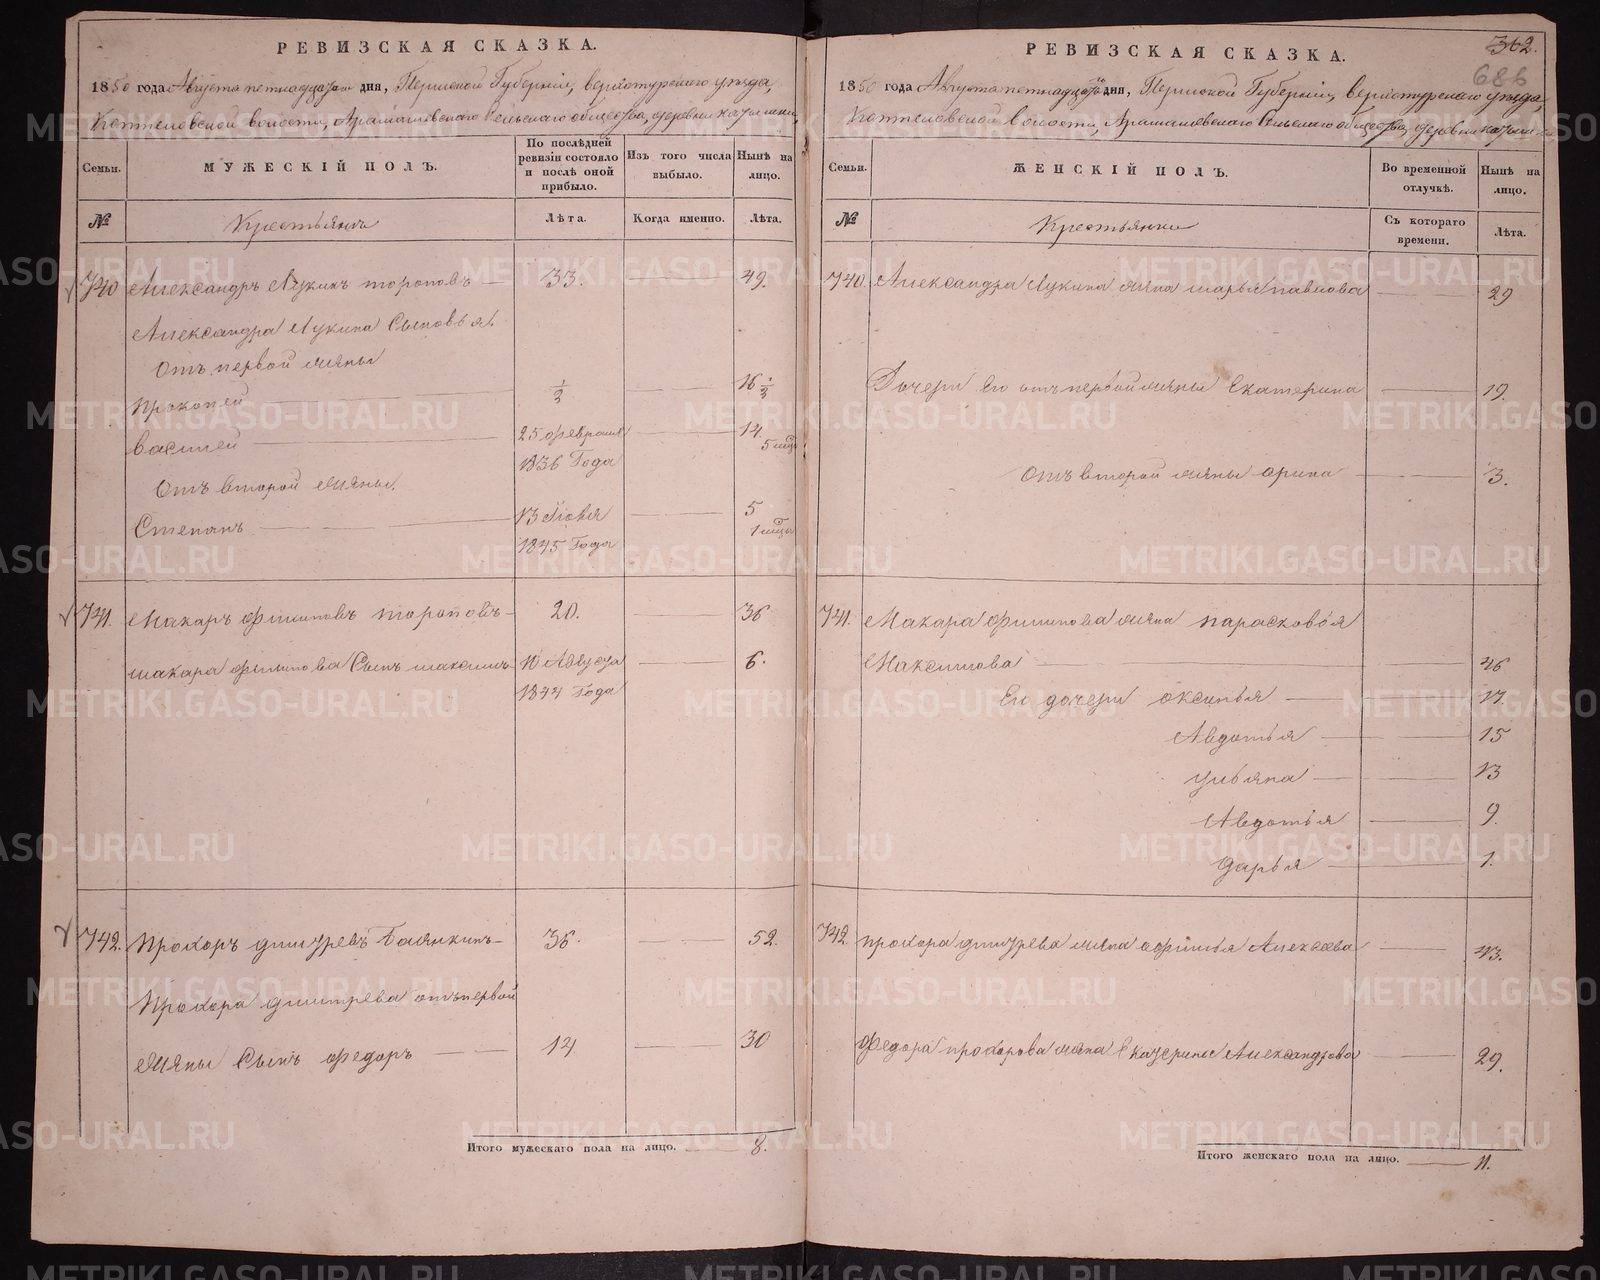 РЕВИЗСКАЯ СКАЗКА.
1850 года Августа петнадцатого дня, Пермской Губерніи, верхотурского уезда,
волости, Арамашевского Сельского общества, деревни
Семьи. МУЖЕСКІЙ ПОЛЪ. По послѣдней ревизіи состояло и послѣ оной прибыло. Изъ того числа выбыло. Нынѣ на лицо.
№ Крестьянъ Лѣта. Когда именно. Лѣта.
740 Александръ Лукинъ тороповъ 33. 49.
Александра Лукина Сыновья.
Отъ первой жены
Прокопей ½ 16 ½
василей 25 февраля 1836 Года 14. 5 мѣсц
Отъ второй жены.
Степанъ 13 Іюня 1845 Года 5 1 мѣсцъ
741. Макаръ филиповъ тороповъ 20. 36
макара филипова Сынъ максимъ 10 Августа 1844 Года 6.
742. Прохоръ дмитревъ 36. 52.
Прохора дмитрева отъ первой
жены Сынъ федоръ 14 30
Итого мужескаго пола на лицо. 8.
362.
686
РЕВИЗСКАЯ СКАЗКА.
1850 года Августа петнадцатого дня, Пермской Губерніи, верхотурского уезда
волости, Арамашевского Сельского общества, деревни
Семьи. ЖЕНСКІЙ ПОЛЪ. Во временной отлучкѣ. Нынѣ на лицо.
№ Крестьянки Съ котораго времени. Лѣта.
740. Александра Лукина жена марья павлова 29
Дочери Его отъ первой жены Екатерина 19.
Отъ второй жены орина 3.
741. Макара филипова жена парасковья
Максимова 46
Ею дочери оксинья 17.
Авдотья 15
ульяна 13
Авдотья 9.
дарья 1.
742. прохора дмитрева жена афимья Алексеева 43.
Федора прохорова жена Екатерина Александрова 29.
Итого женскаго пола на лицо. 11.
METRIKI.GASO-URAL.RU